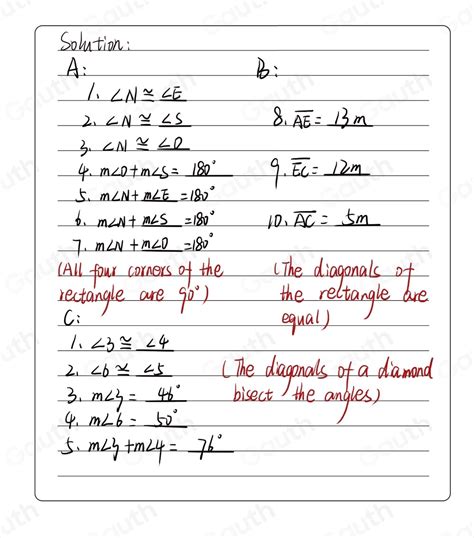 Solution:
A:
1. ∠N ≅ ∠E
2. ∠N ≅ ∠S
3. ∠N ≅ ∠O
4. m∠O + m∠S = 180°
5. m∠N + m∠E = 180°
6. m∠N + m∠S = 180°
7. m∠N + m∠O = 180°
(All four corners of the
rectangle are 90°)
B:
8. AE = 13m
9. EC = 12m
10. AC = 5m
(The diagonals of
the reltangle are
equal)
C:
1. ∠3 ≅ ∠4
2. ∠6 ≅ ∠5
3. m∠3 = 46°
4. m∠6 = 50°
5. m∠3 + m∠4 = 76°
(The diagonals of a diamond
bisect the angles)
Gauth